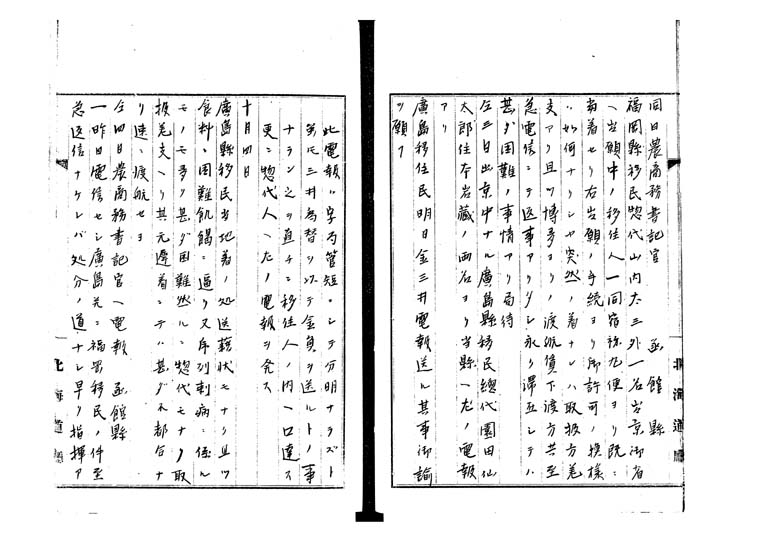 同日農商務書記官　函館縣
福岡縣移民惣代山内大三外一名出京御省
へ出願中ノ移住人一同宿祢丸便ヨリ既ニ
着セリ右出願ノ手続ヨリ御許可ノ模様
ハ如何ナリシヤ突然ノ着ナレハ取扱方差
支アリ且ツ博多ヨリノ渡航賃下渡方共至
急電信ニテ返事アリタシ永ク滞在シテハ
甚ダ困難ノ事情アリ
今三日出京中ナル廣島縣移民總代園田仙
太郎住本岩藏ノ両名ヨリ当縣ヘ左ノ電報
アリ
廣島移住民明日金三井電報送ル其事御諭
ヲ願フ
此電報ハ字句簡短ニシテ分明ナラズト
雖氏三井為替ヲ以テ金員ヲ送ルトノ事
ナラン之ヲ直チニ移住人ノ内ヘ口達ス
更ニ惣代人ヘ左ノ電報ヲ発ス
十月四日
廣島縣移民当地着ノ処送籍状モナク且ツ
食料ニ困難飢餲ニ逼リ又
モノモ多ク甚ダ困難然ルニ惣代モナク取
扱差支ヘリ其元遷着ニテハ甚ダ不都合ナ
リ速ニ渡航セヨ
今四日農商務書記官ヘ電報　函館縣
一昨日電信セシ廣島並ニ福岡移民ノ件至
急返信ナケレバ処分ノ道ナシ早ク指揮ア
北海道廳
北海道廳